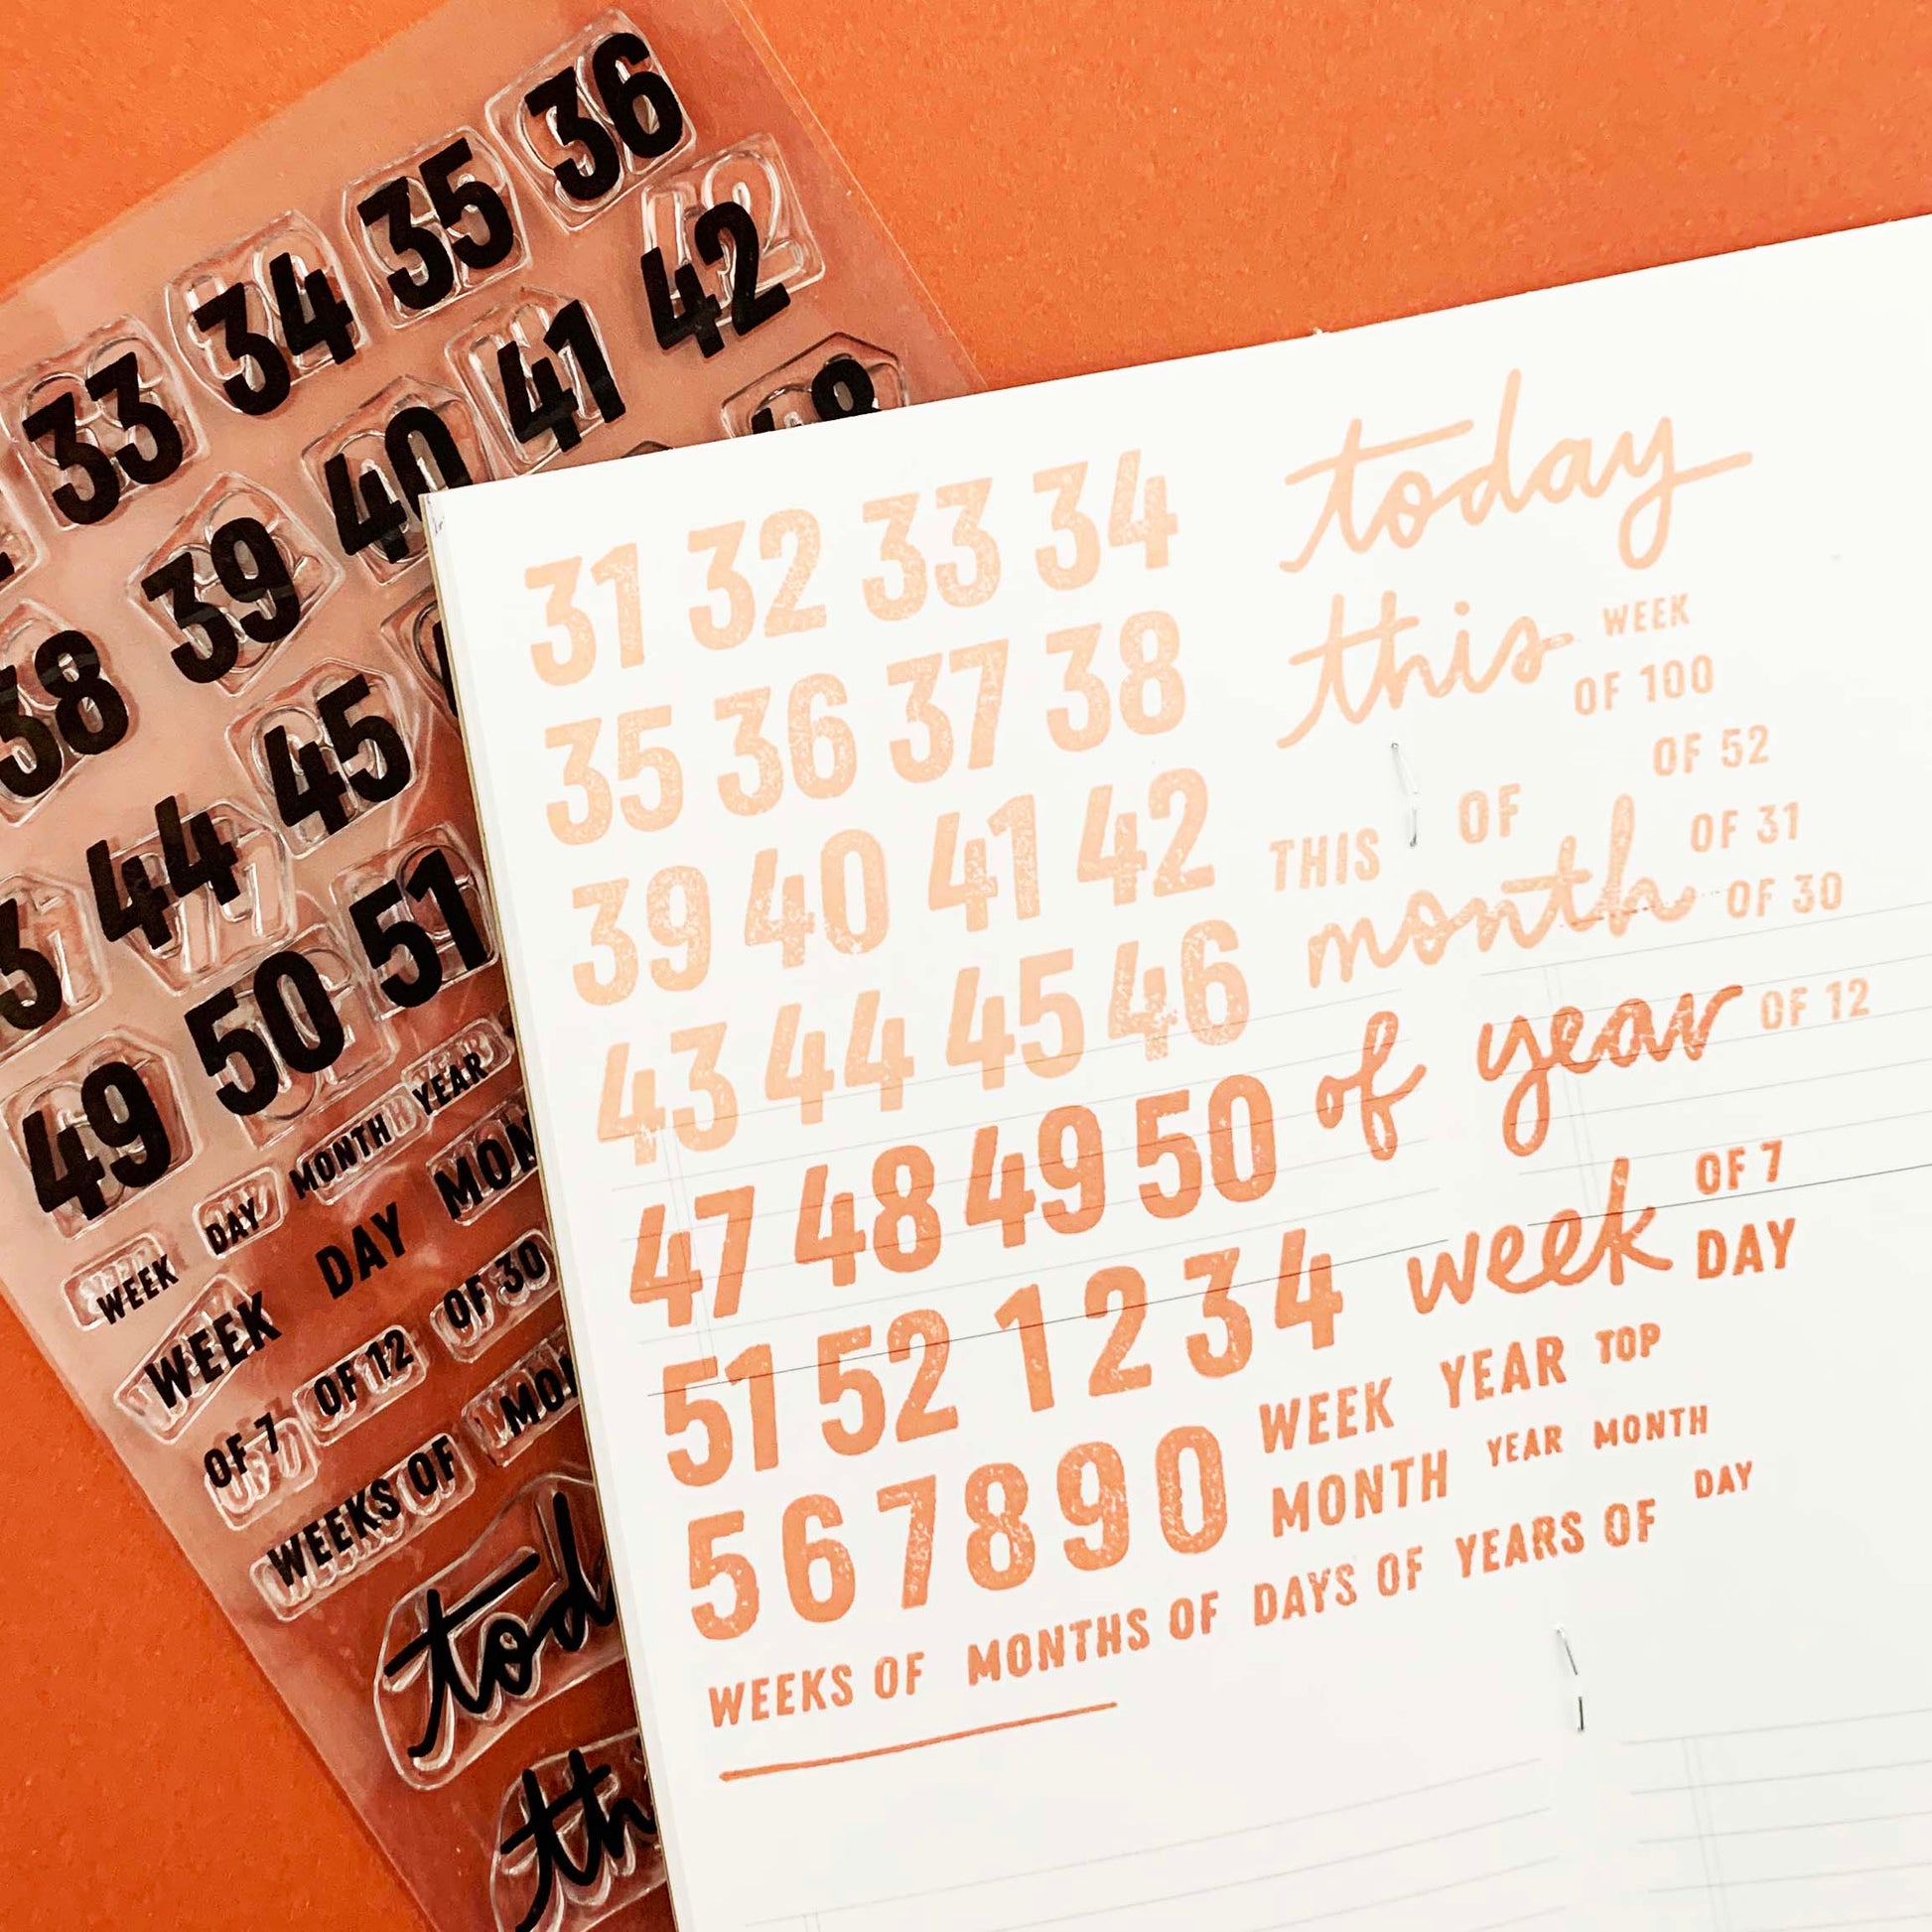 36
35
34
33
42
41
40
39
38
45
44
51
50
49
48
WEEK DAY MONTH YEAR
WEEK DAY
OF 7 OF 12 OF 30
WEEKS OF
31 32 33 34 today
35 36 37 38 this WEEK
OF 100
OF 52
39 40 41 42 THIS OF OF 31
43 44 45 46 month OF 30
47 48 49 50 of year OF 12
51 52 1 2 3 4 week OF 7
DAY
5 6 7 8 9 0 WEEK YEAR TOP
MONTH YEAR MONTH
DAY
WEEKS OF MONTHS OF DAYS OF YEARS OF